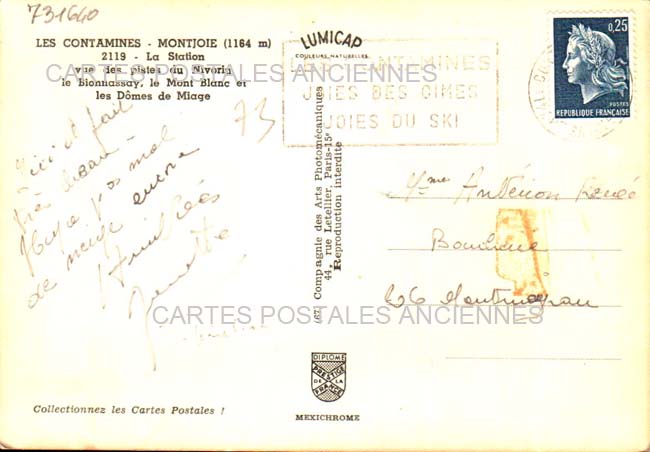 731640
LES CONTAMINES - MONTJOIE (1164 m)
2119 - La Station
vue des pistes du Nivorin
le Bionnassay, le Mont Blanc et
les Dômes de Miage
LUMICAP
COULEURS NATURELLES
LES CONTAMINES
JOIES DES CIMES
JOIES DU SKI
0,25
POSTES
REPUBLIQUE FRANÇAISE
CARTES POSTALES ANCIENNES
73
Ici il fait
très beau
Il y a pas mal
de neige encore
Amitiés
(67) Compagnie des Arts Photomécaniques
44, rue Letellier, Paris-15e
Reproduction interdite
Mme
06
CARTES POSTALES ANCIENNES
DIPLOME
PRESTIGE
DE LA
FRANCE
MEXICHROME
Collectionnez les Cartes Postales !